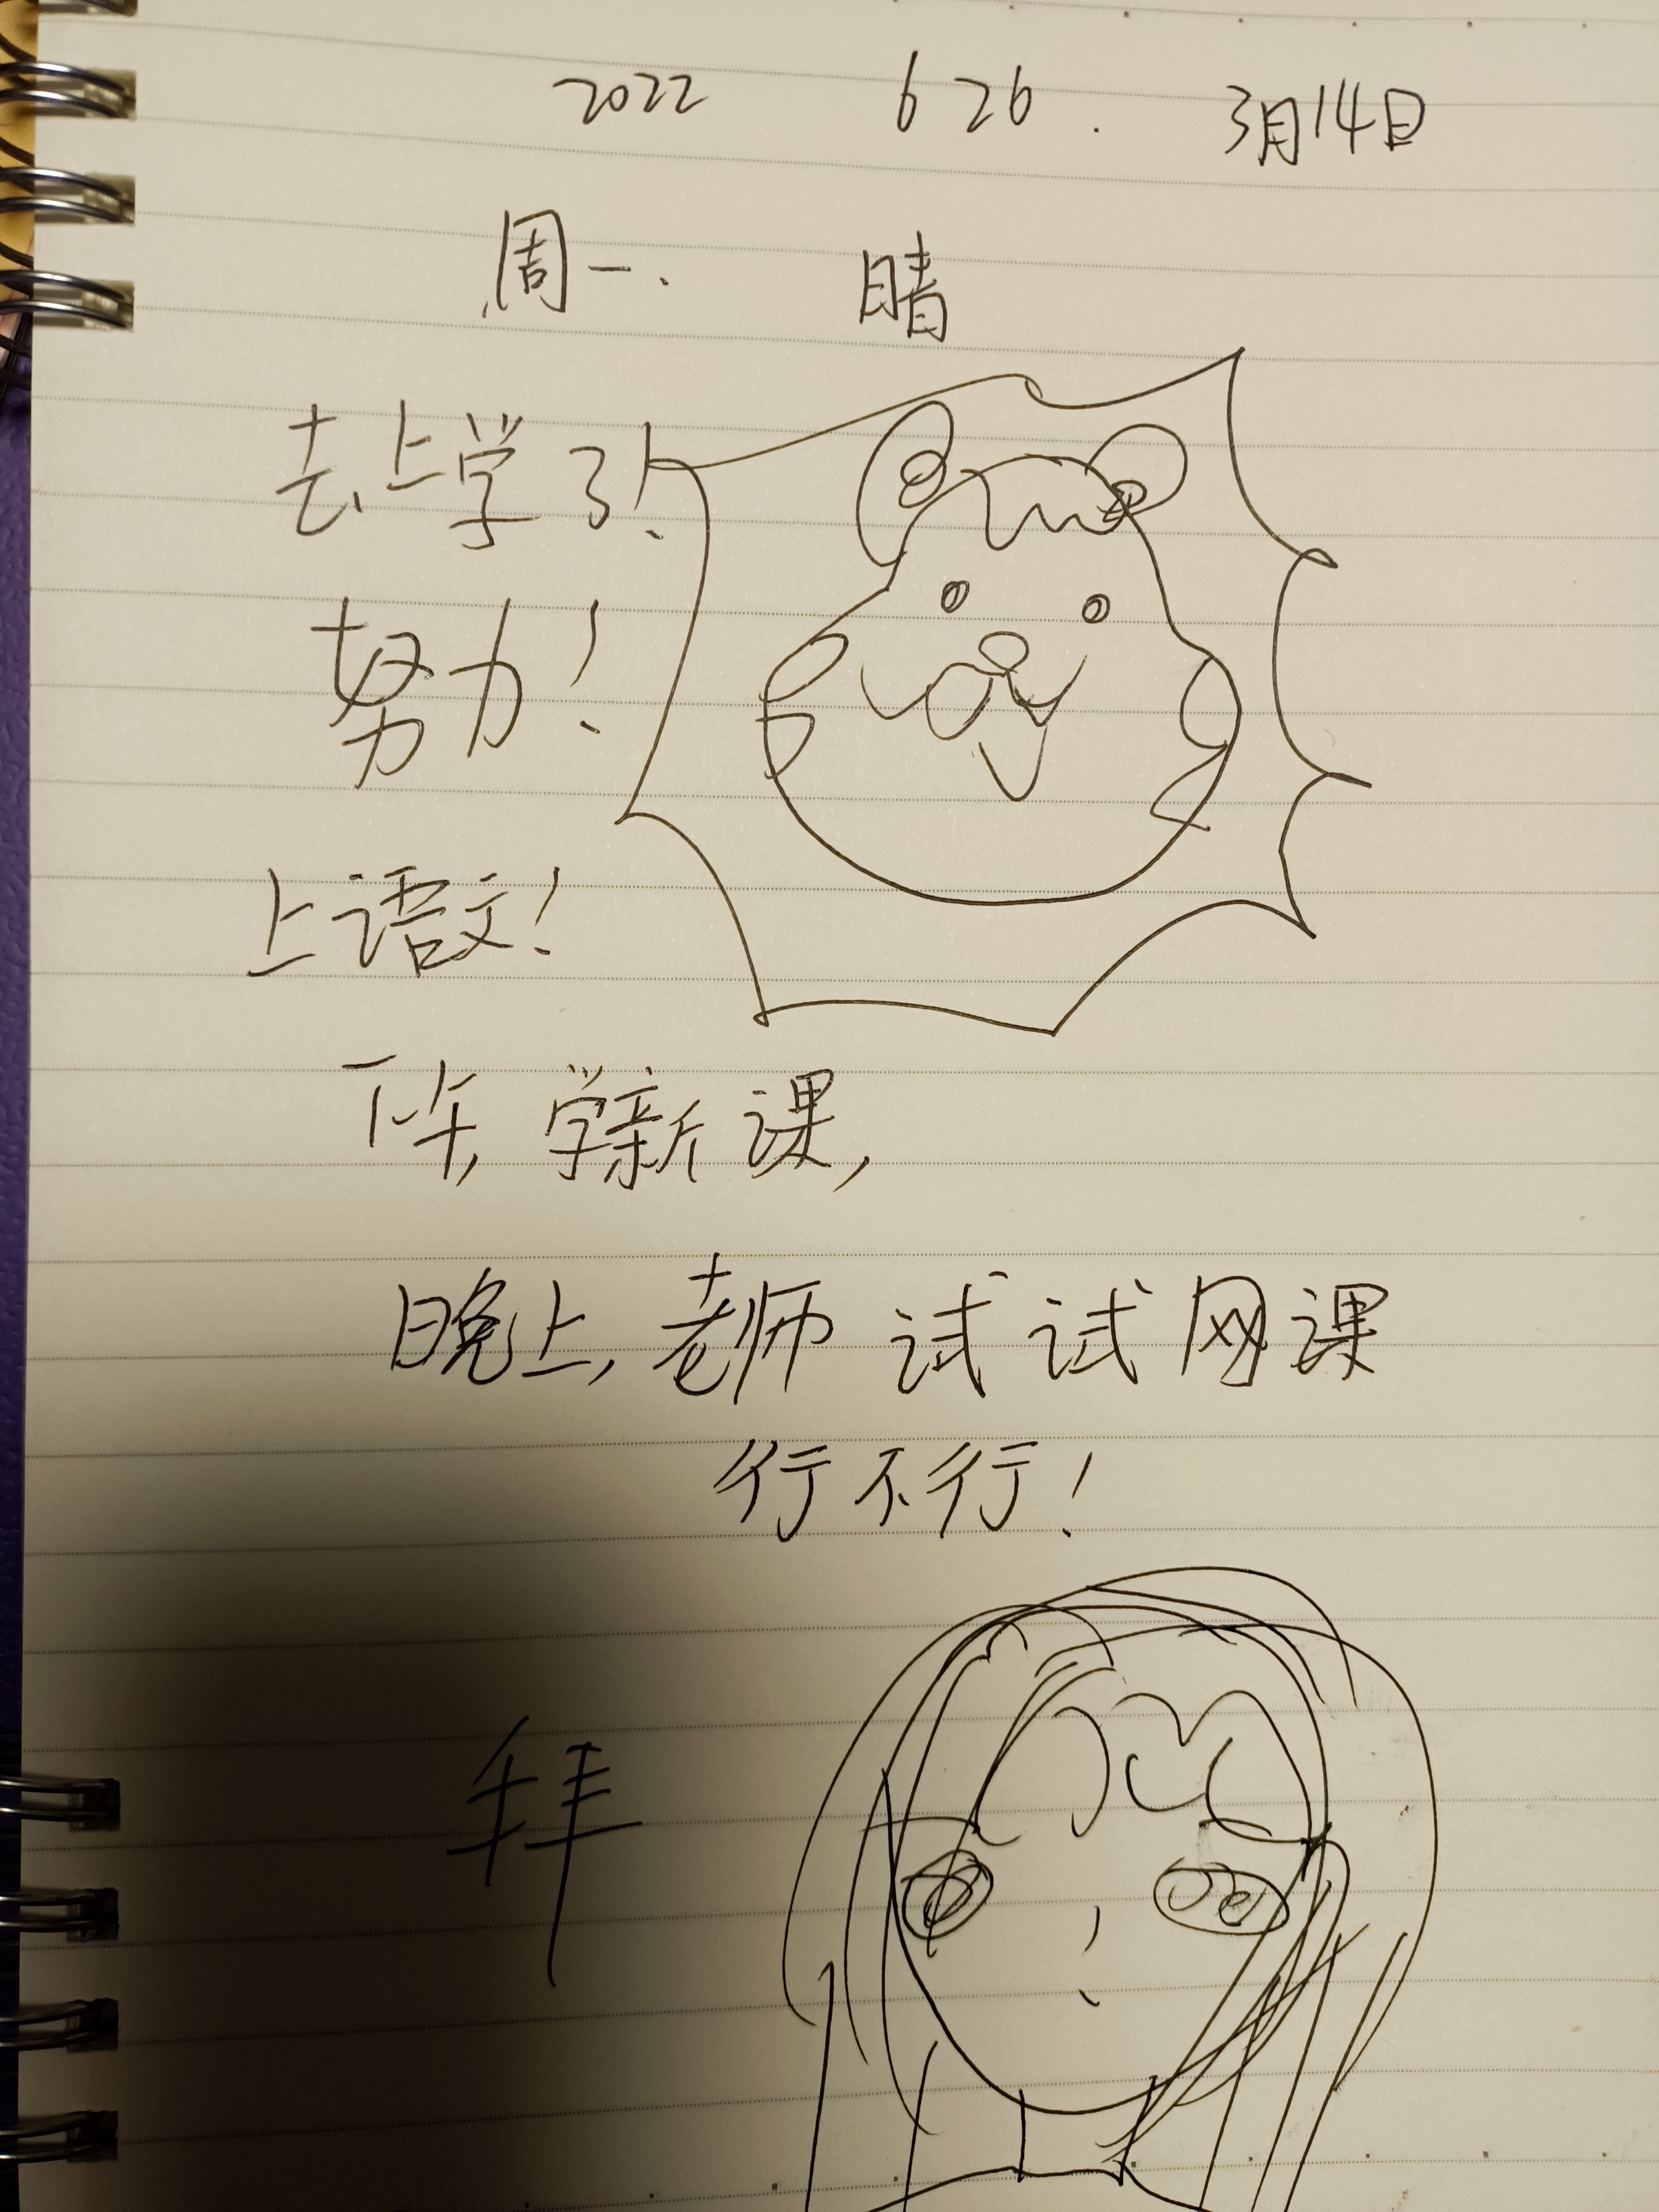 2022 6 26. 3月14日
周一. 晴
去上学了!
努力!
上语文!
下午, 学新课,
晚上, 老师试试网课
行不行!
拜